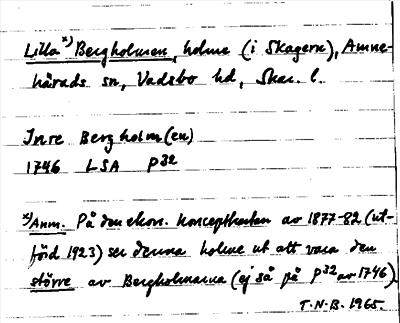 Lilla x) Bergholmen, holme (i Skagern), Amne-
härads sn, Vadsbo hd, Skar. l.
Inre Bergholm(en)
1746 LSA P32
x) Anm. På den ekon. konceptkartan av 1877-82 (ut-
förd 1923) ser denna holme ut att vara den
större av Bergholmarna (ej så på P32 av 1746).
T.N.B. 1965.